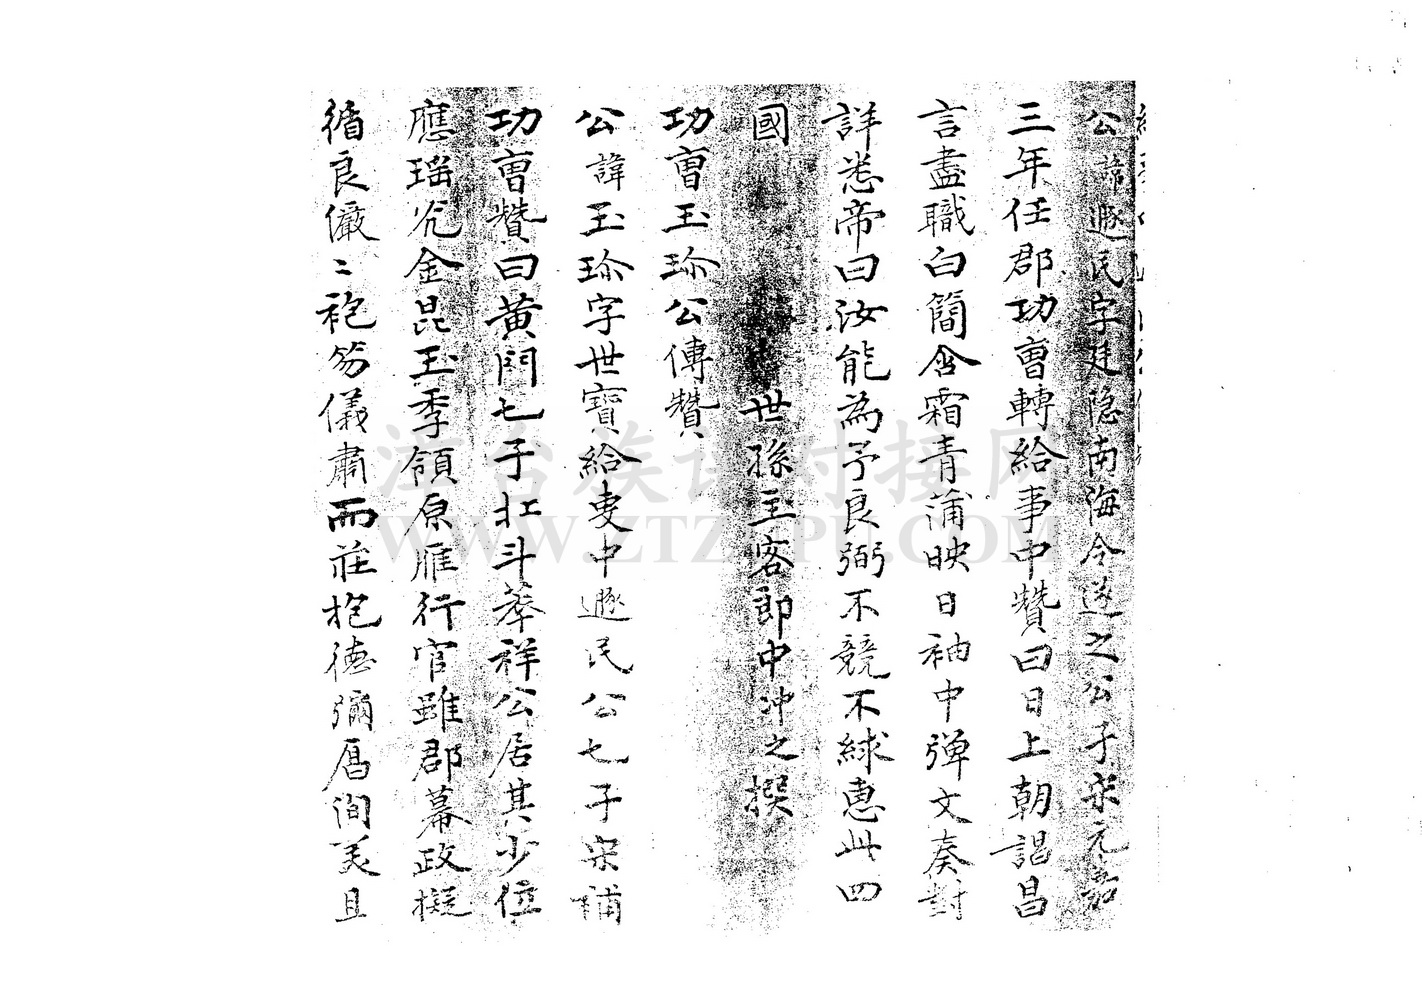 公諱遯民字廷隐南海令遂之公子宋元嘉
三年任郡功曹轉給事中贊曰日上朝謁昌
言盡職白簡含霜青蒲映日袖中弹文奏對
詳悉帝曰汝能為予良弼不競不絿惠此四
國 世孫主客郎中冲之撰
功曹玉珎公傳贊
公諱玉珎字世寶給吏中遯民公七子宋補
功曹贊曰黄門七子北斗萃祥公居其少位
應瑶光金昆玉季領原雁行官雖郡幕政擬
循良儼〻袍笏儀肅而莊抱德彌厚洵美且
淬台族谱对接网
WWW.ZTZUPU.COM